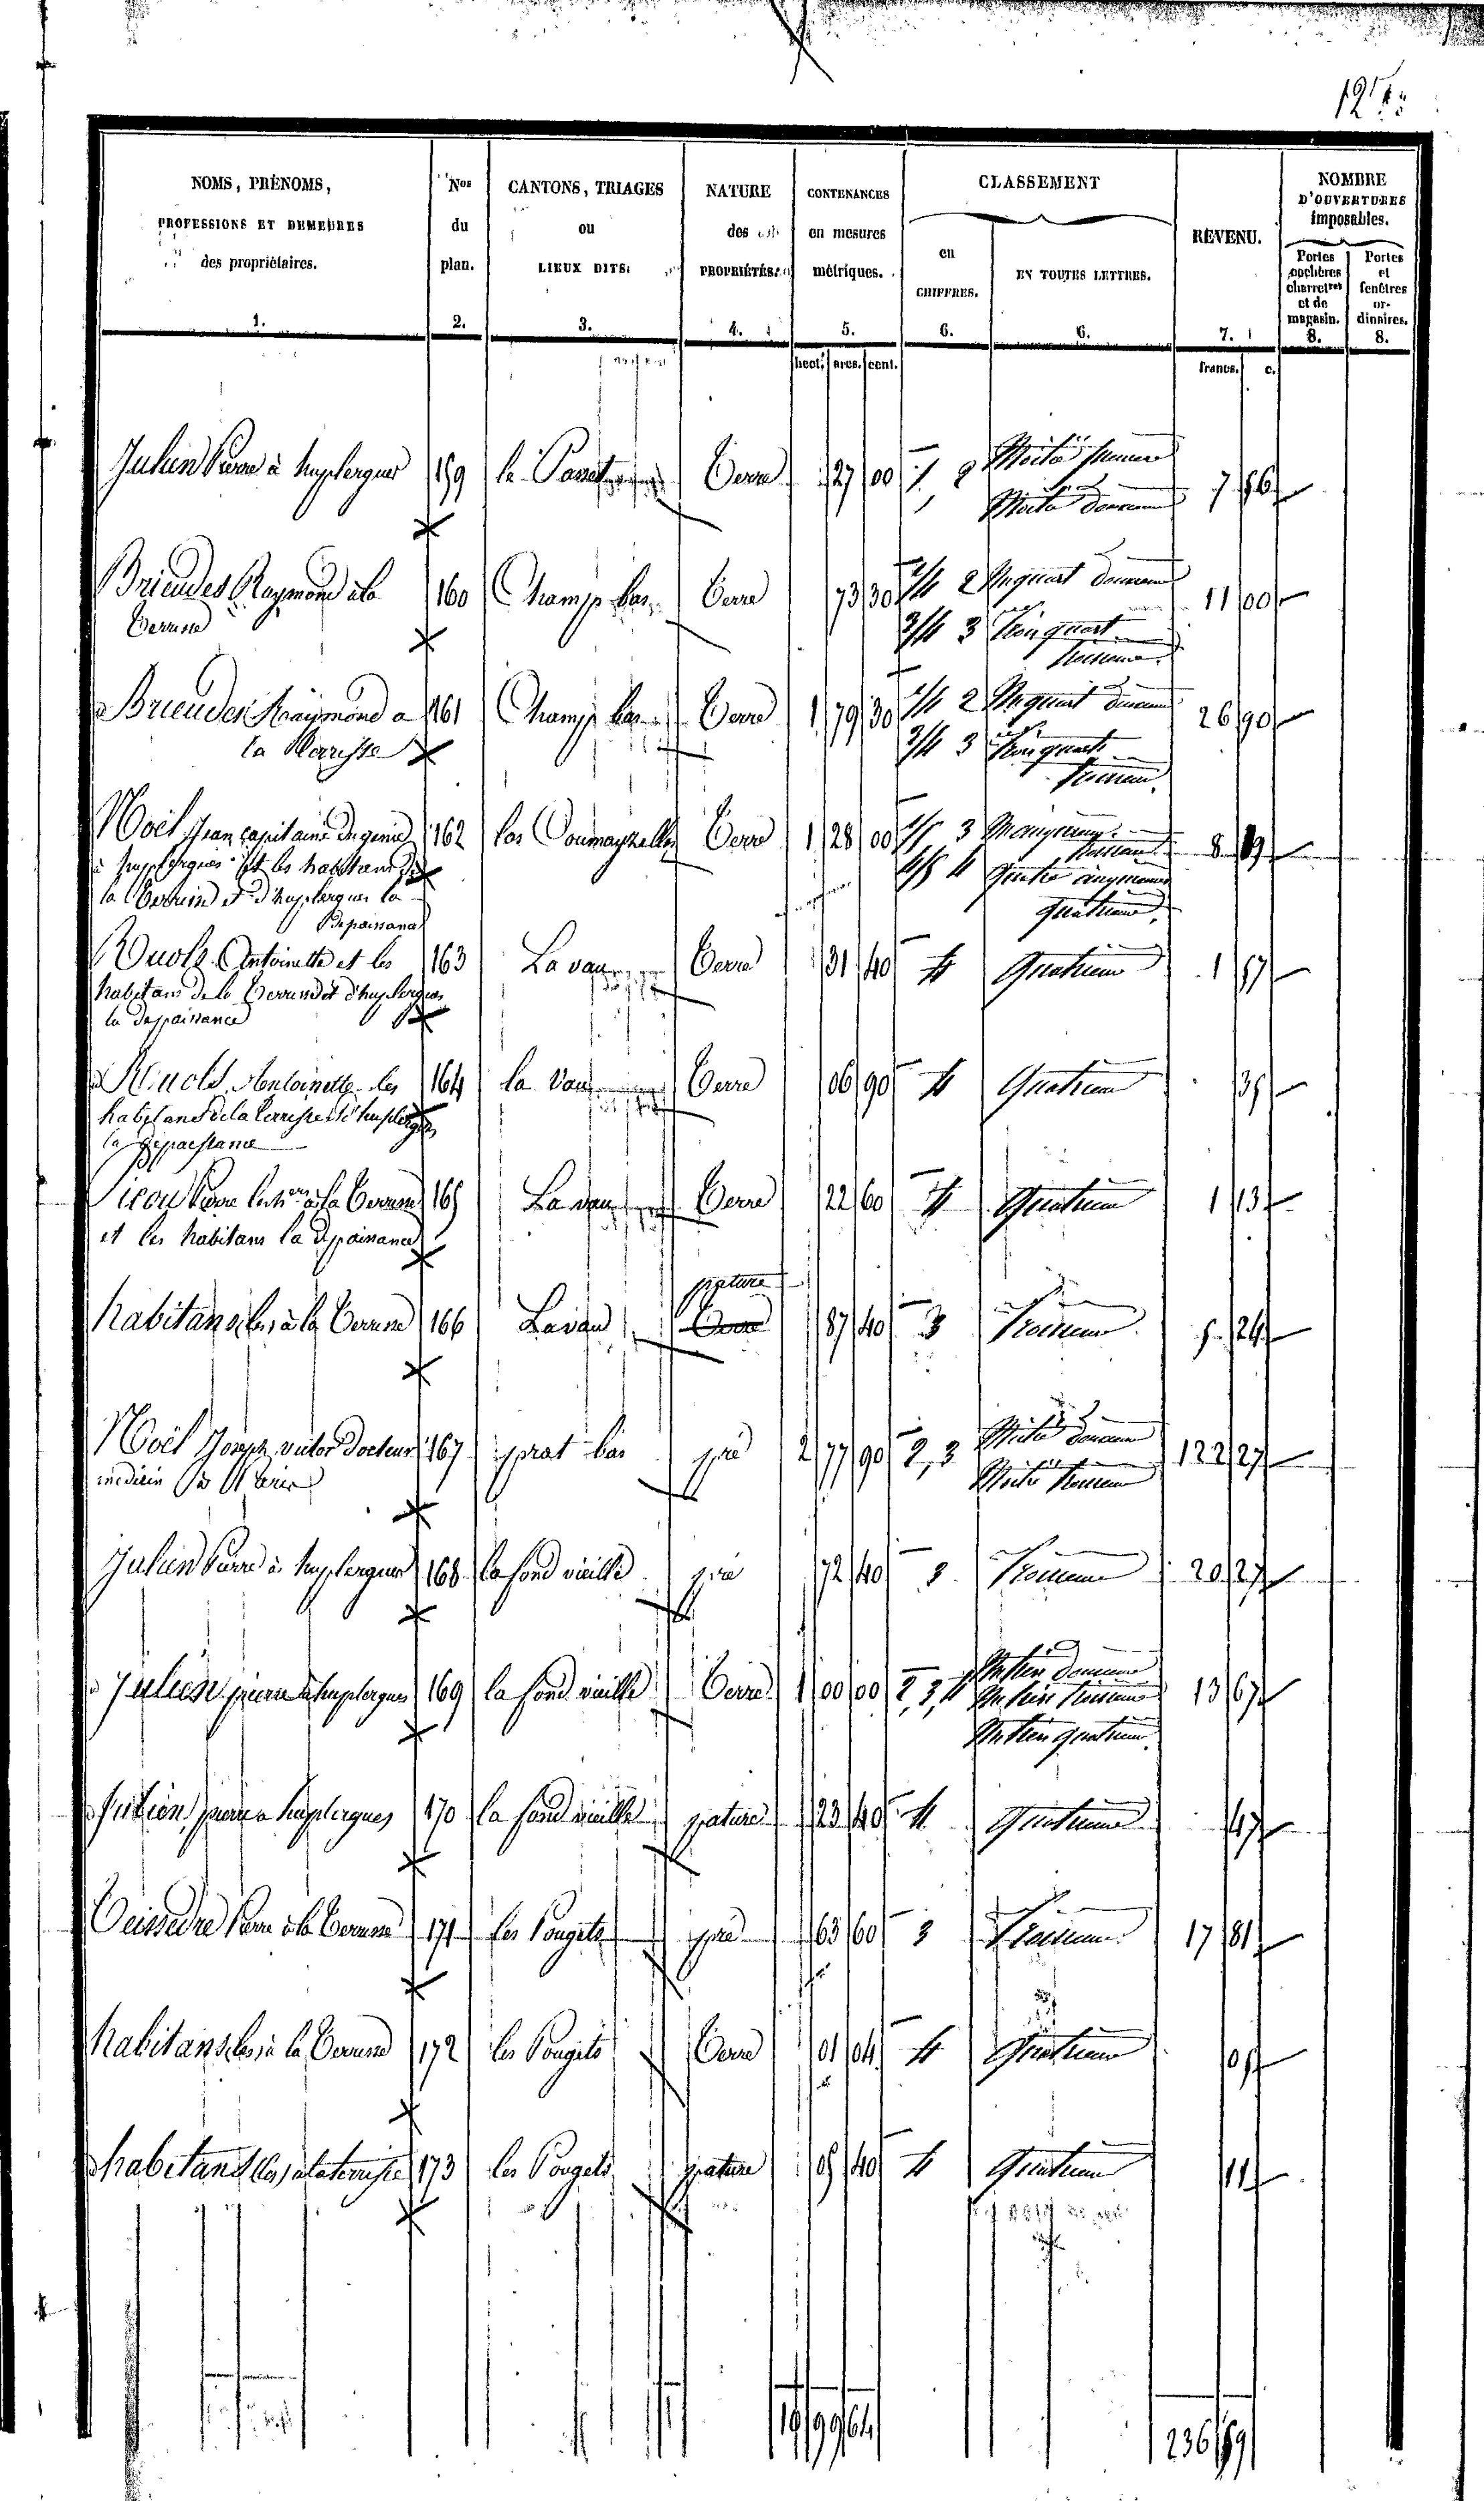 NOMS, PRÉNOMS,
PROFESSIONS ET DEMEURES
des propriétaires.
1.
Nos
du
plan.
2.
CANTONS, TRIAGES
ou
LIEUX DITS.
3.
NATURE
des
PROPRIÉTÉS.
4.
CONTENANCES
en mesures
métriques.
5.
CLASSEMENT
en
CHIFFRES.
6.
EN TOUTES LETTRES.
6.
REVENU.
7.
NOMBRE
D'OUVERTURES
imposables.
Portes
cochères
charretres
et de
magasin.
8.
Portes
et
fenêtres
or-
dinaires.
8.
hect. ares. cent.
francs. c.
Julien Pierre à huplergues 159 le Terre 27 00 1, 2 Moitié premiere
Moitié deuxieme 7 56
Brieudes Raymond à la 160 Champ bas Terre 73 30 1/4 2 Un quart deuxieme 11 00
Terrisse 3/4 3 Trois quart
troisieme
Brieudes Raymond a 161 Champ bas Terre 1 79 30 1/4 2 Un quart deuxieme 26 90
la Terrisse 3/4 3 Trois quart
troisieme
Noël Jean capitaine du genie 162 Terre 1 28 00 1/5 3 troisieme 8
à huplergues et les habitans de 4/5 4 quatre cinquieme
la Terrisse et d'huplergues la quatrieme
Depaissance
Ruols Antoinette et les 163 La vau Terre 31 40 4 Quatrieme 1 57
habitans de la Terrisse et d'huplergues
la depaissance
Ruols Antoinette les 164 la Vau Terre 06 90 4 Quatrieme 35
habitans de la Terrisse et d'huplergues
la depaissance
Pierre à la Terrisse 165 La vau Terre 22 60 4 Quatrieme 1 13
et les habitans la depaissance
pature
habitans les à la Terrisse 166 La vau Terre 87 40 3 Troisieme 5 24
Noël Joseph victor Docteur 167 prat bas pré 2 77 90 2, 3 Moitié deuxieme 122 27
medecin Moitié troisieme
Julien Pierre à huplergues 168 la fond vieille pré 72 40 3 Troisieme 20 27
Julien pierre à huplergues 169 la fond vieille Terre 1 00 00 2, 3, 4 Un tiers deuxieme
Un tiers troisieme 13 67
Un tiers quatrieme
Julien pierre a huplergues 170 la fond vieille pature 23 40 4 Quatrieme 47
Teissedre Pierre à la Terrisse 171 les Pougets pré 63 60 3 Troisieme 17 81
habitans les à la Terrisse 172 les Pougets Terre 01 04 4 Quatrieme 05
habitans (les) a la terrisse 173 les Pougets pature 05 40 4 Quatrieme 11
99 64 236